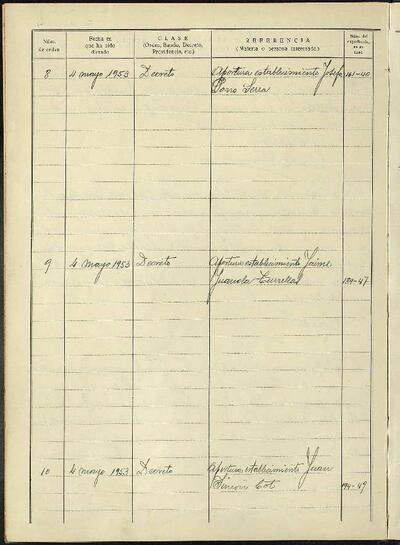 Núm. de orden
Fecha en que ha sido dictado
CLASE
(Orden, Bando, Decreto, Providencia, etc.)
REFERENCIA
(Materia o persona interesada)
Núm. del expediente, en su caso
8 4 mayo 1953 Decreto Apertura establecimiento Josefa 141-40
Pons Serra
9 4 mayo 1953 Decreto Apertura establecimiento Jaime
Juanola 184-47
10 4 mayo 1953 Decreto Apertura establecimiento Juan
Simon Cot -49